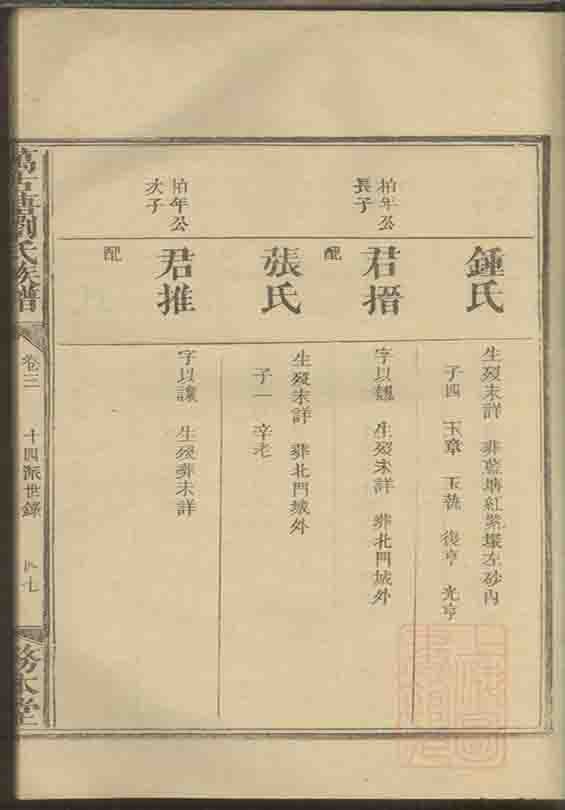 鍾氏
生歿未詳 葬藍塘紅紫壩左砂內
子四 玉章 玉 復亨 光亨
柏年公
長子
君搢
配
字以 生歿未詳 葬北門城外
張氏
生歿未詳 葬北門城外
子一 辛老
柏年公
次子
君推
配
字以讓 生歿葬未詳
萬石塘劉氏族譜
卷三
十四派世錄
四七
務本堂